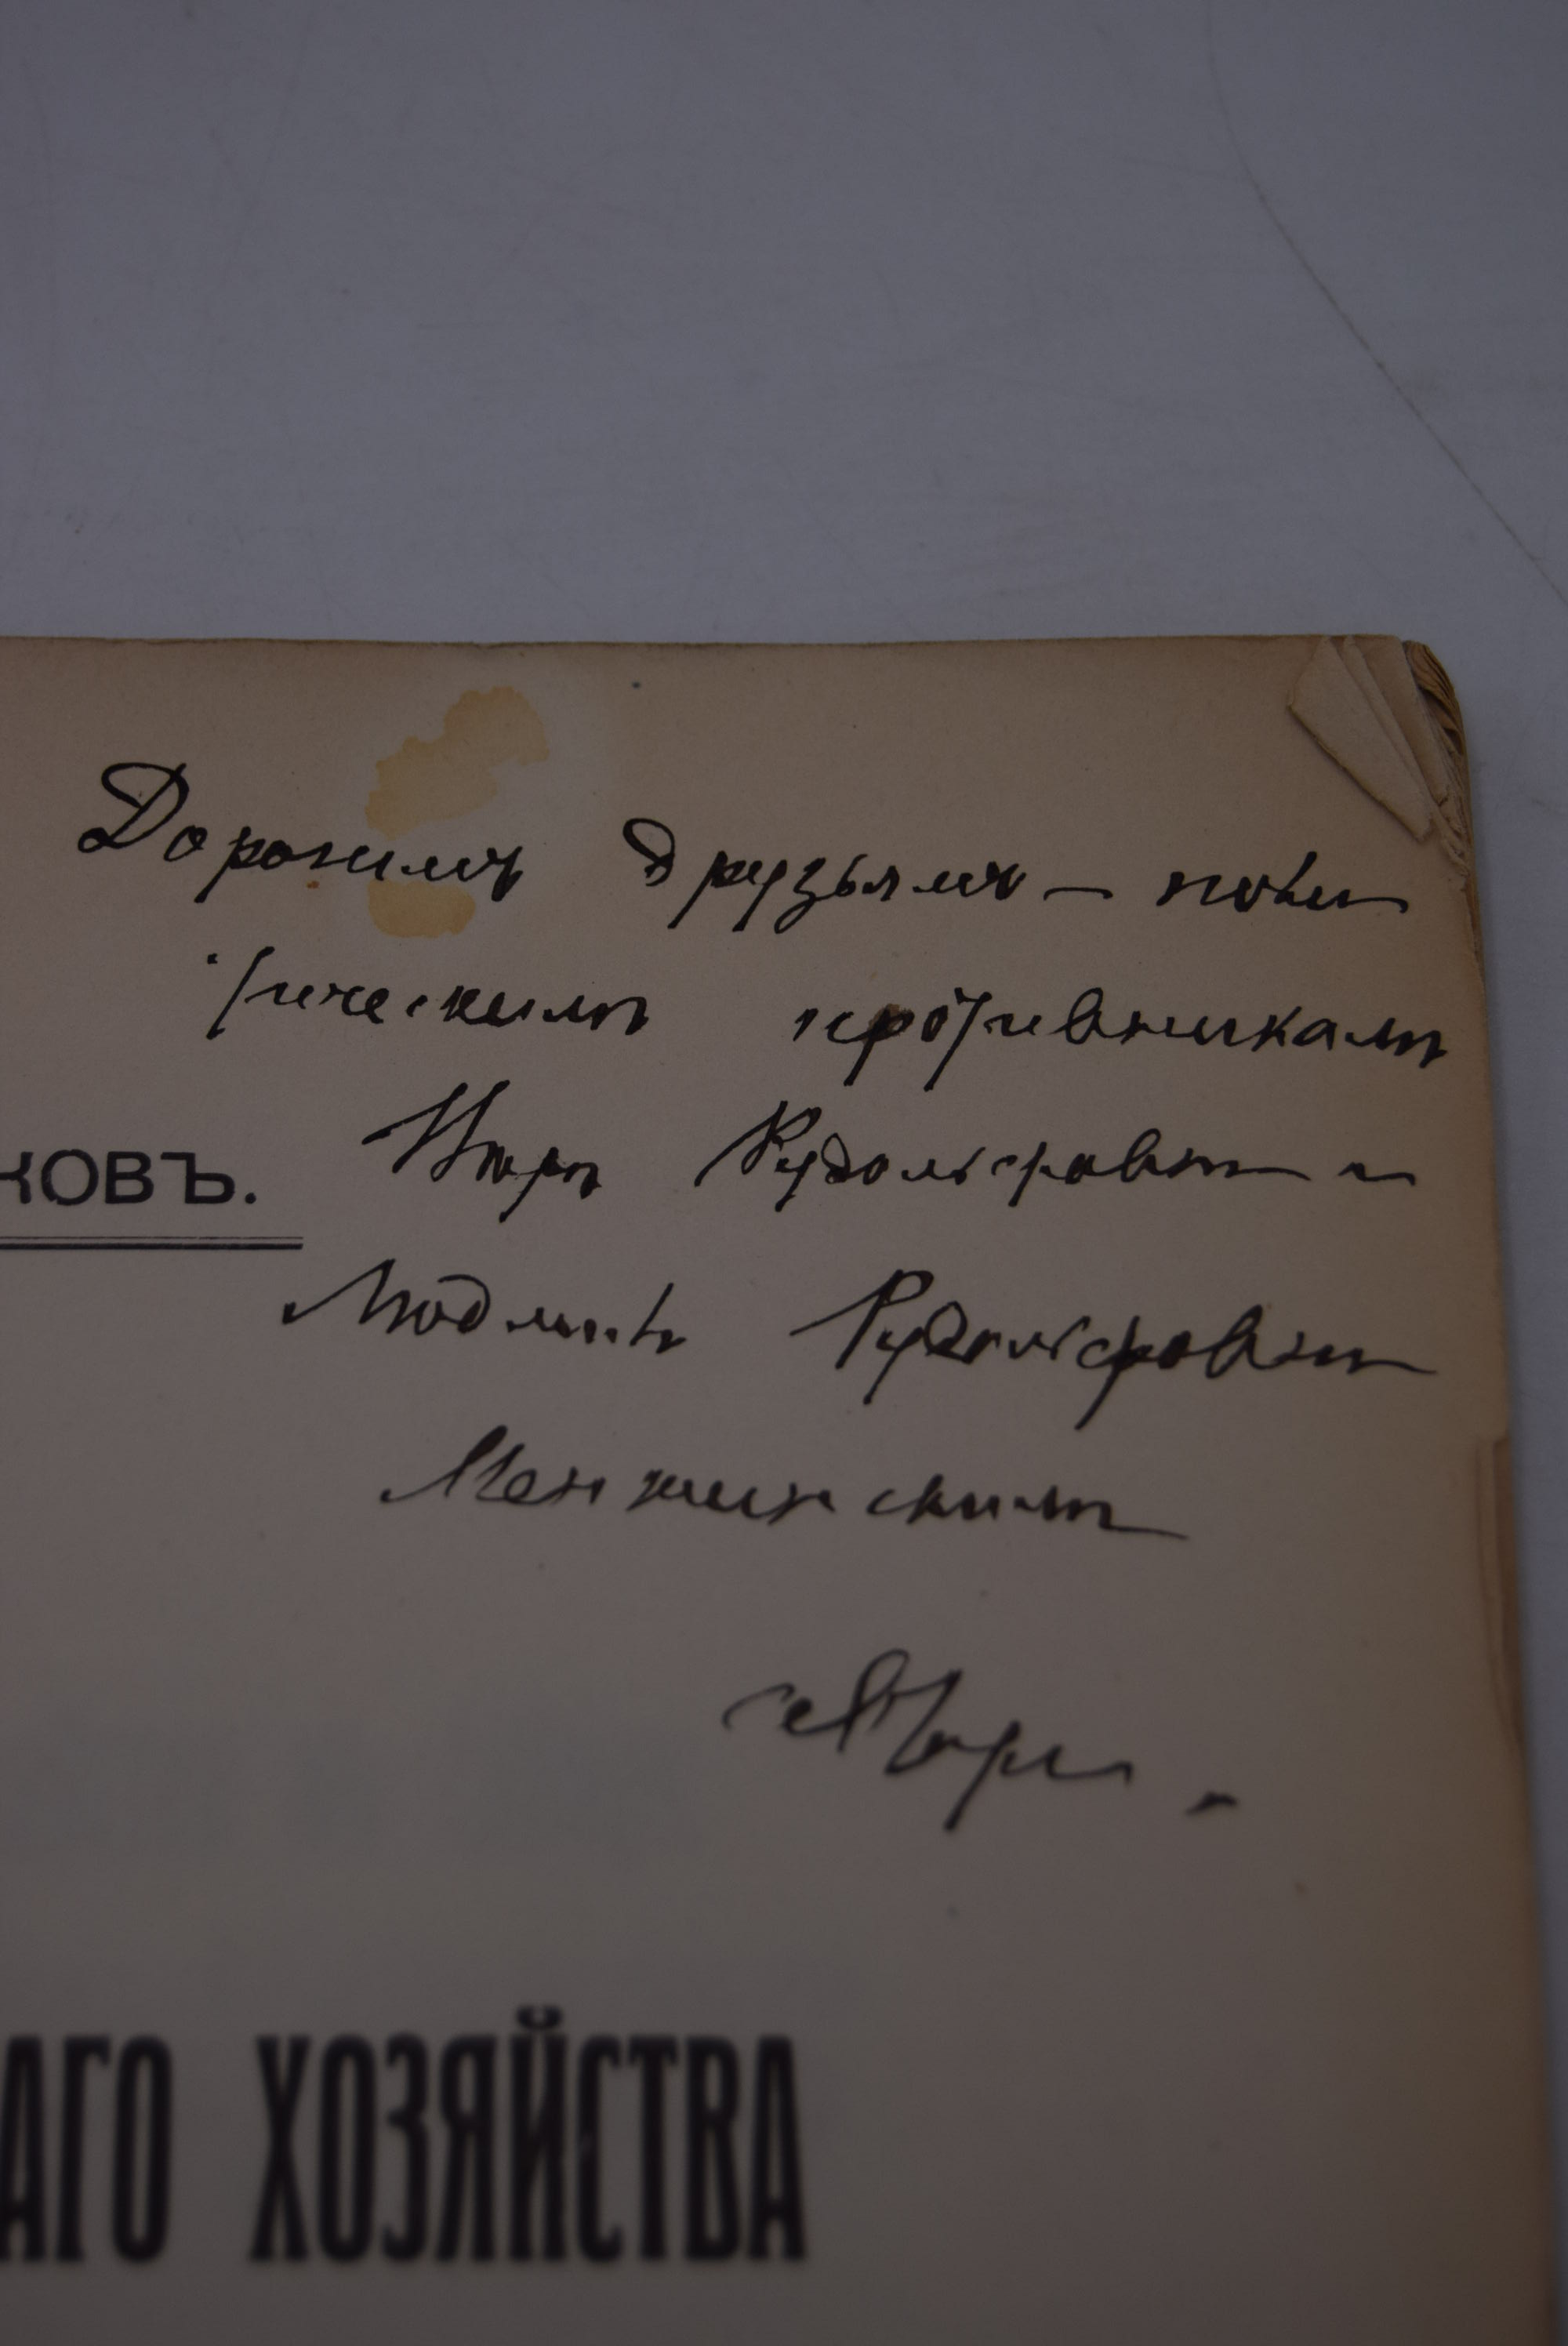 Дорогимъ друзьямъ – поли
тическимъ противникамъ
Вѣрѣ Рудольфовнѣ и
КОВЪ.
Людмилѣ Рудольфовнѣ
Менжинскимъ
авторъ.
АГО ХОЗЯЙСТВА